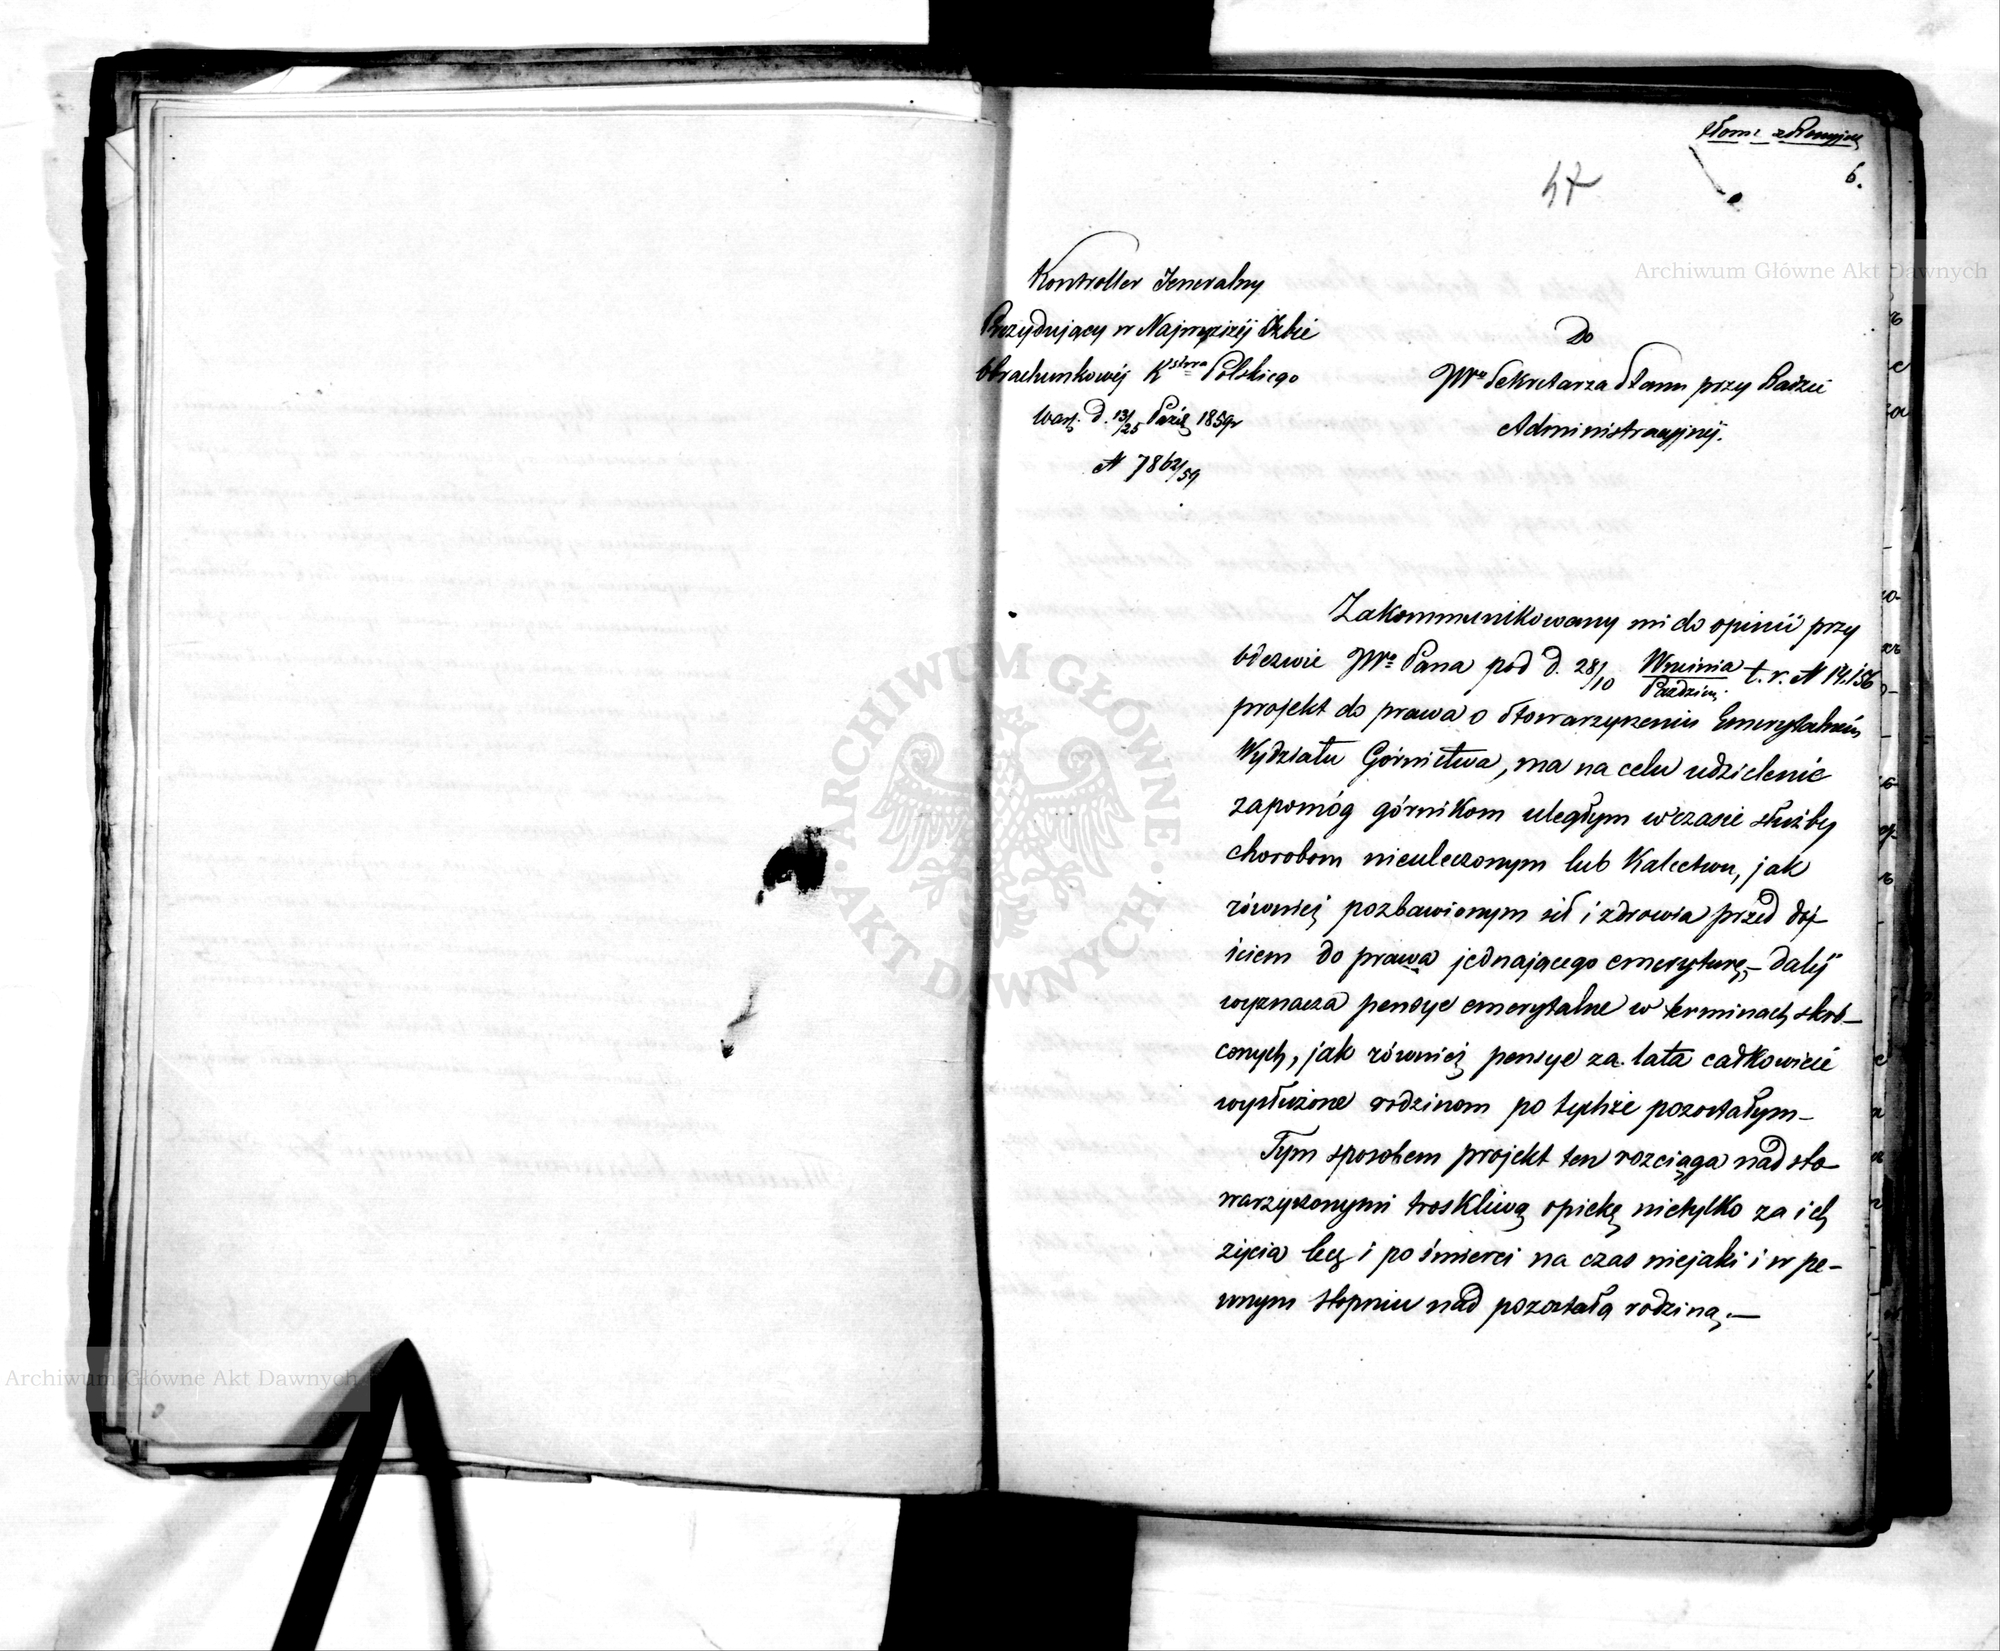 tłom: z Rossyjsk
6.
47
Kontroller Jeneralny
Prezydujący w Najwyższéj Izbie
Obrachunkowéj K<sup>stwa</sup> Polskiego
Wars. d. 13/25 Paźdz 1859 r
N 7862/59
Do
JW° Sekretarza Stanu przy Radzie
Administracyjnéj.
Zakommunikowany mi do opinii przy
Odezwie JW° Pana pod d. 28/10 Września/Paździer: t. r. N 14,156
projekt do prawa o Stowarzyszeniu Emerytalném
Wydziału Górnictwa, ma na celu udzielenie
zapomóg górnikom uległym w czasie służby
chorobom nieuleczonym lub Kalectwu, jak
równiéj pozbawionym sił i zdrowia przed doj-
ściem do prawa jednającego emeryturę, – daléj
wyznacza pensye emerytalne w terminach skró-
conych, jak równiéj pensye za lata całkowicie
wysłużone rodzinom po tychże pozostałym –
Tym sposobem projekt ten rozciąga nad sto-
warzyszonymi troskliwą opiekę nietylko za ich
życia lecz i po śmierci na czas niejaki i w pe-
wnym stopniu nad pozostałą rodziną. –
Archiwum Główne Akt Dawnych
ARCHIWUM GŁÓWNE AKT DAWNYCH
Archiwum Główne Akt Dawnych